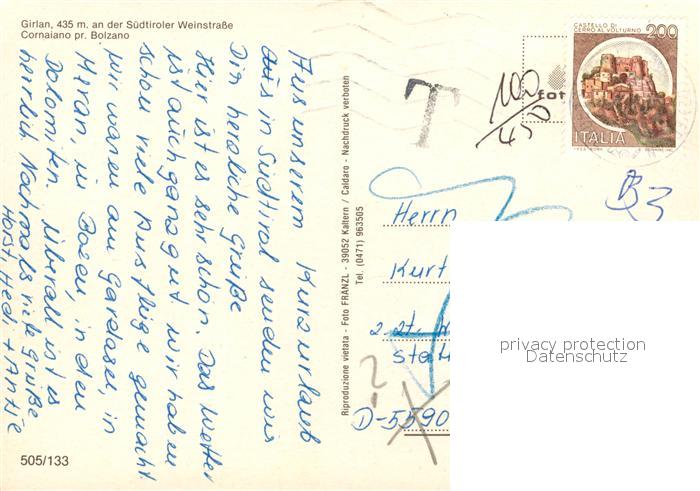 Girlan, 435 m. an der Südtiroler Weinstraße
Cornaiano pr. Bolzano
Aus unserem Kurzurlaub
aus in Südtirol senden wir
Dir herzliche Grüße
Hier ist es sehr schön. Das Wetter
ist auch ganz gut wir haben
schon viele Ausflüge gemacht.
wir waren am Gardasee, in
Meran in Bozen, in den
Dolomiten. Überall ist es
herrlich. Nochmals viele Grüße
Horst, Hedi + Antje
505/133
Riproduzione vietata - Foto FRANZL - 39052 Kaltern / Caldaro - Nachdruck verboten
Tel. (0471) 963505
T
100
450
fot
CASTELLO DI
CERRO AL VOLTURNO
200
ITALIA
Herrn
Kurt
z. Zt.
?
D-5590
privacy protection
Datenschutz